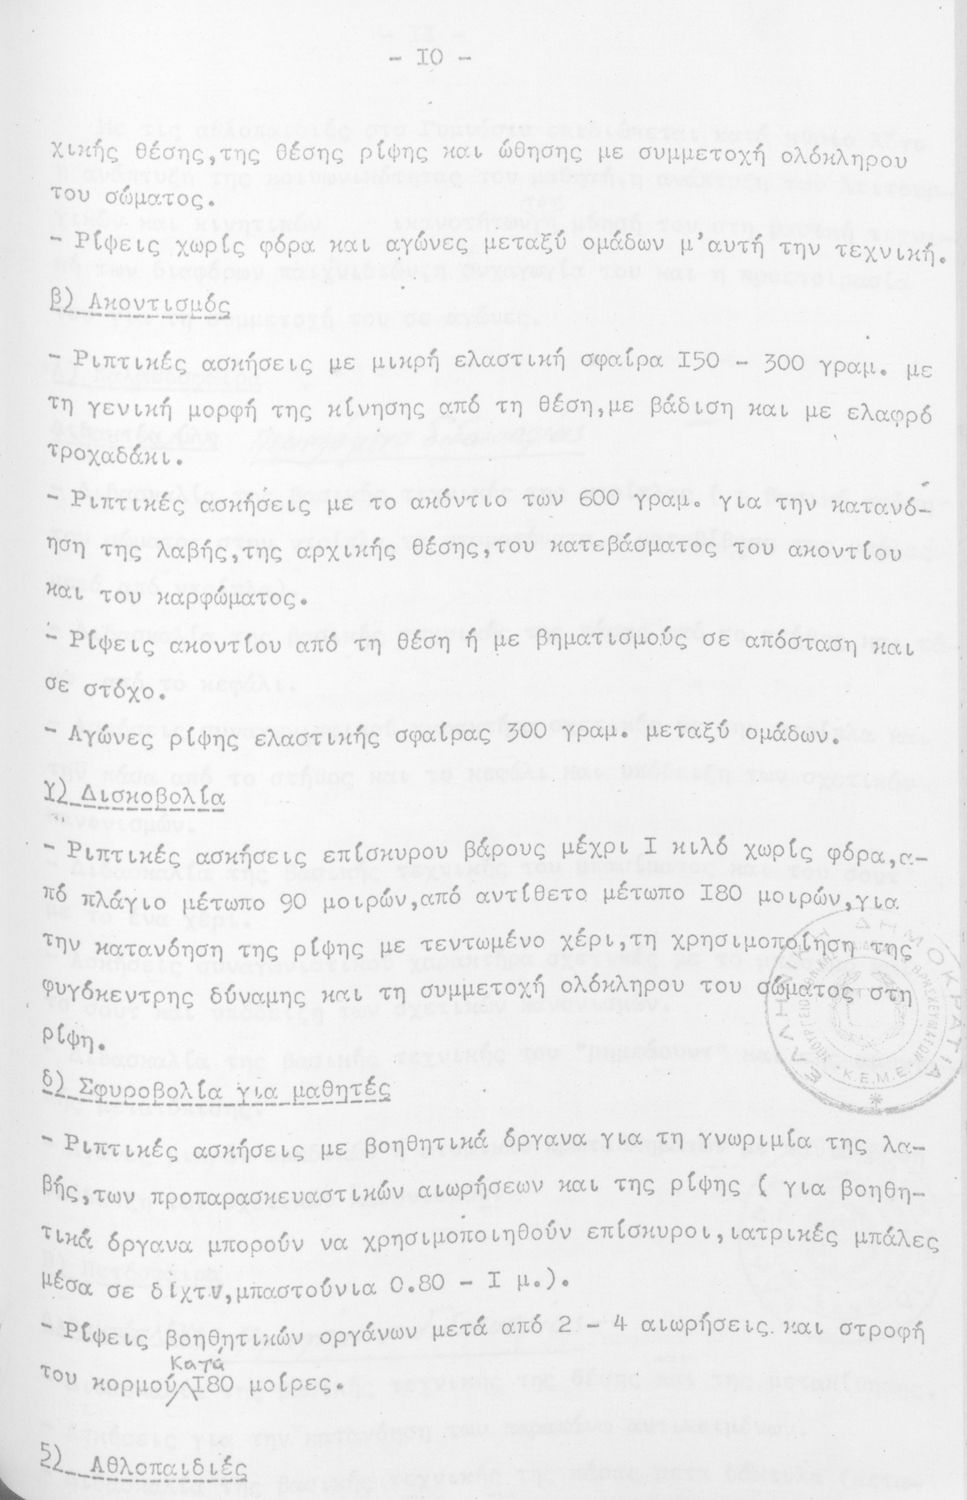 - 10 -
χικής θέσης,της θέσης ρίψης και ώθησης με συμμετοχή ολόκληρου
του σώματος.
- Ρίψεις χωρίς φόρα και αγώνες μεταξύ ομάδων μ'αυτή την τεχνική.
β) Ακοντισμός
- Ριπτικές ασκήσεις με μικρή ελαστική σφαίρα 150 - 300 γραμ. με
τη γενική μορφή της κίνησης από τη θέση,με βάδιση και με ελαφρό
τροχαδάκι.
- Ριπτικές ασκήσεις με το ακόντιο των 600 γραμ. για την κατανό-
ηση της λαβής,της αρχικής θέσης,του κατεβάσματος του ακοντίου
και του καρφώματος.
- Ρίψεις ακοντίου από τη θέση ή με βηματισμούς σε απόσταση και
σε στόχο.
- Αγώνες ρίψης ελαστικής σφαίρας 300 γραμ. μεταξύ ομάδων.
γ) Δισκοβολία
- Ριπτικές ασκήσεις επίσκυρου βάρους μέχρι 1 κιλό χωρίς φόρα,α-
πό πλάγιο μέτωπο 90 μοιρών,από αντίθετο μέτωπο 180 μοιρών,για
την κατανόηση της ρίψης με τεντωμένο χέρι,τη χρησιμοποίηση της
φυγόκεντρης δύναμης και τη συμμετοχή ολόκληρου του σώματος στη
ρίψη.
ΕΛΛΗΝΙΚΗ ΔΗΜΟΚΡΑΤΙΑ
Κ.Ε.Μ.Ε.
δ) Σφυροβολία για μαθητές
- Ριπτικές ασκήσεις με βοηθητικά όργανα για τη γνωριμία της λα-
βής,των προπαρασκευαστικών αιωρήσεων και της ρίψης ( για βοηθη-
τικά όργανα μπορούν να χρησιμοποιηθούν επίσκυροι,ιατρικές μπάλες
μέσα σε δίχτυ,μπαστούνια 0.80 - 1 μ.).
- Ρίψεις βοηθητικών οργάνων μετά από 2 - 4 αιωρήσεις και στροφή
κατά
του κορμού 180 μοίρες.
5) Αθλοπαιδιές